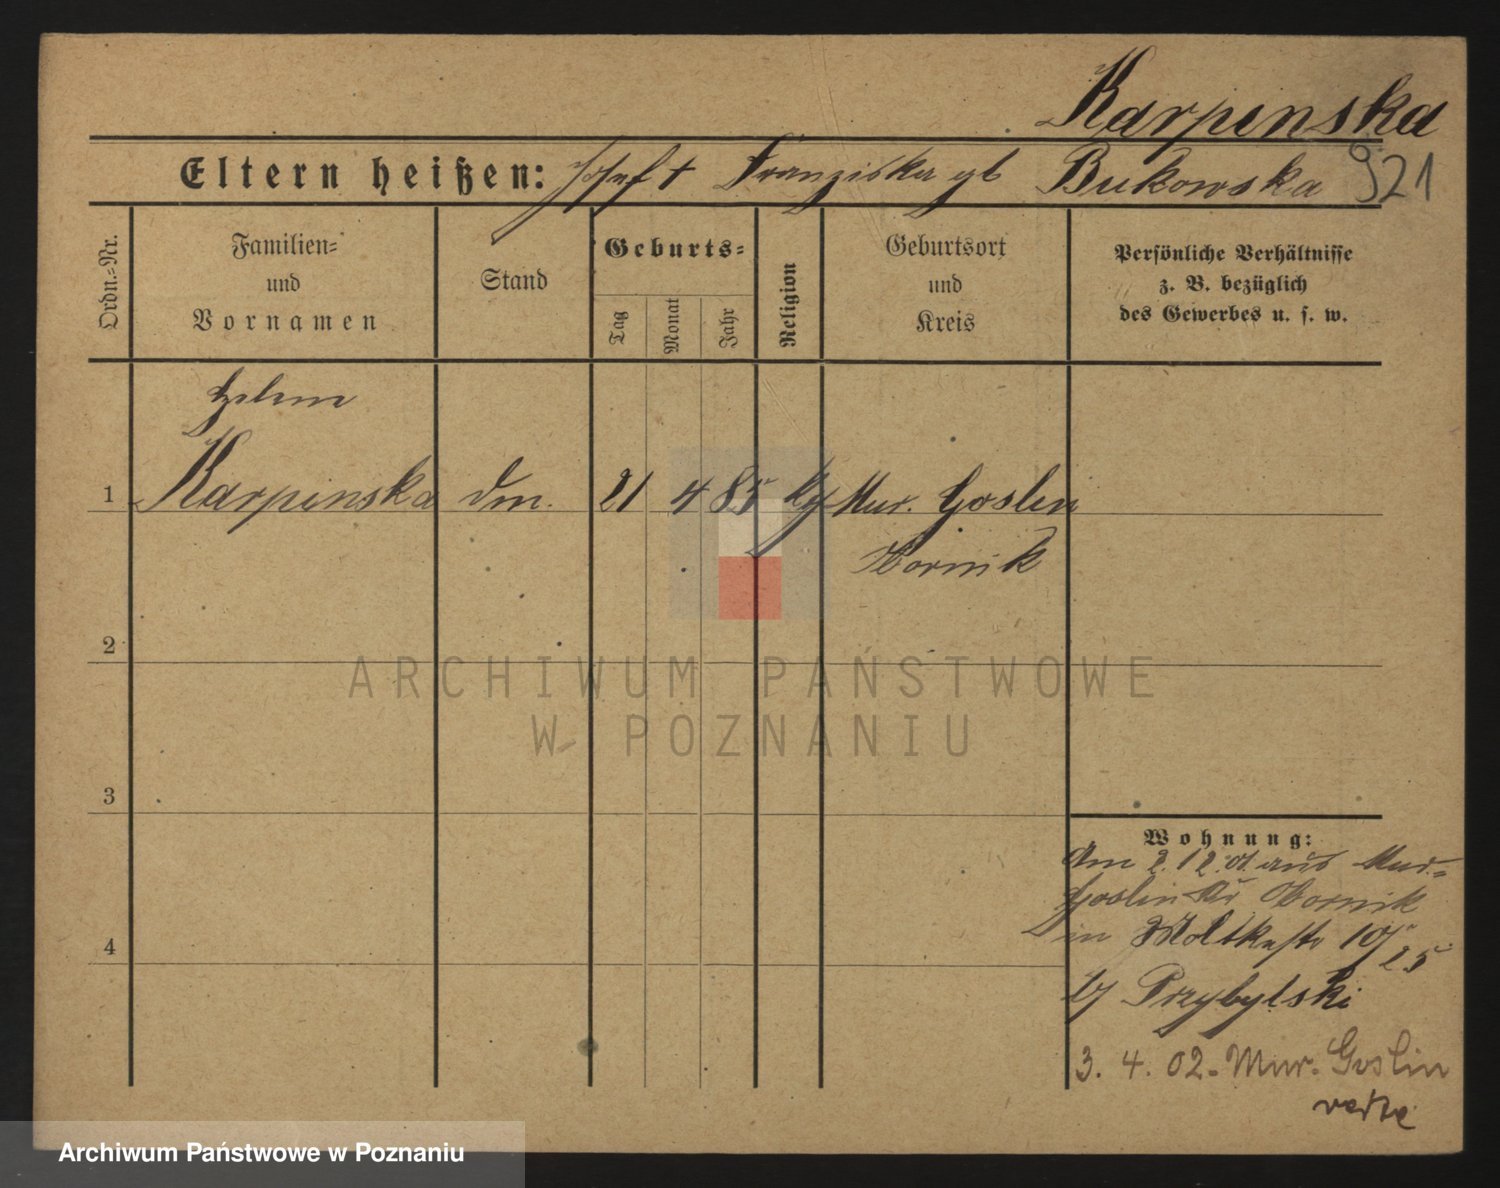 Karpenska
Eltern heißen: Josef † Franziska gb Bukowska 921
Ordn.=Nr.
Familien=
und
Vornamen
Stand
Geburts=
Tag
Monat
Jahr
Religion
Geburtsort
und
Kreis
Persönliche Verhältnisse
z. B. bezüglich
des Gewerbes u. s. w.
Helene
1 Karpinska 21 4 85 Mur. Goslin
Obornik
2
ARCHIWUM PAŃSTWOWE
W POZNANIU
3
Wohnung:
Am 2.12.01 aus Mur.=
Goslin Kr Obornik
in Moltkestr 10
25
by Przybylski
4
3. 4. 02. Mur. Goslin
Archiwum Państwowe w Poznaniu